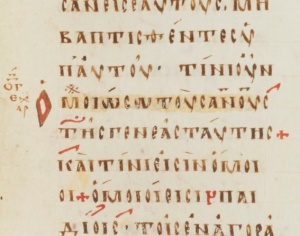 ϹΑΝΕΙϹΕΑΥΤΟΥϹ. ΜΗ
ΒΑΠΤΙϹΘΕΝΤΕϹΥ
ΠΑΥΤΟΥ· ΤΙΝΙΟΥΝ
ΟΜΟΙΩϹΩΤΟΥϹΑΝΟΥϹ
ΤΗϹΓΕΝΕΑϹΤΑΥΤΗϹ+
ΚΑΙΤΙΝΙΕΙϹΙΝΟΜΟΙ
ΟΙ+ΟΜΟΙΟΙΕΙϹΙΠΑΙ
ΔΙΟΙϹ·ΤΟΙϹΕΝΑΓΟΡΑ